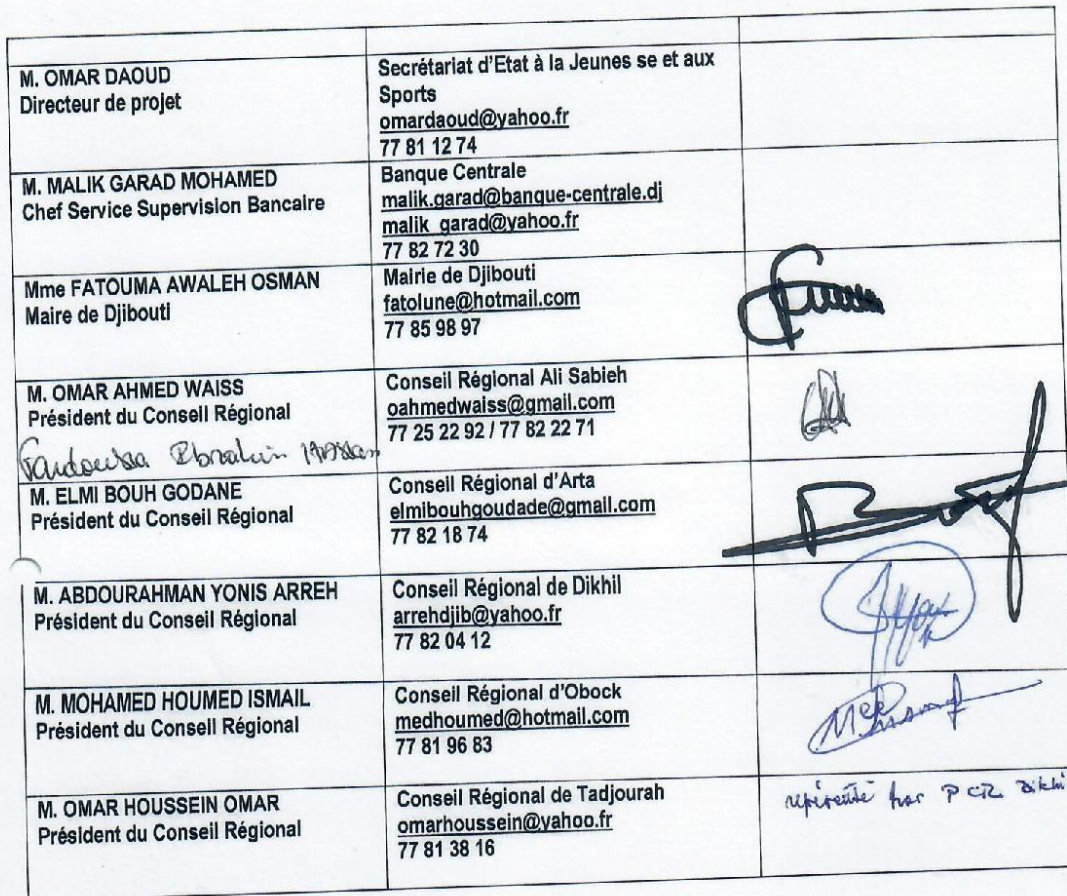 M. OMAR DAOUD
Directeur de projet
Secrétariat d'Etat à la Jeunes se et aux
Sports
omardaoud@yahoo.fr
77 81 12 74
M. MALIK GARAD MOHAMED
Chef Service Supervision Bancaire
Banque Centrale
malik.garad@banque-centrale.dj
malik_garad@yahoo.fr
77 82 72 30
Mme FATOUMA AWALEH OSMAN
Maire de Djibouti
Mairie de Djibouti
fatolune@hotmail.com
77 85 98 97
M. OMAR AHMED WAISS
Président du Conseil Régional
Conseil Régional Ali Sabieh
oahmedwaiss@gmail.com
77 25 22 92 / 77 82 22 71
M. ELMI BOUH GODANE
Président du Conseil Régional
Conseil Régional d'Arta
elmibouhgoudade@gmail.com
77 82 18 74
M. ABDOURAHMAN YONIS ARREH
Président du Conseil Régional
Conseil Régional de Dikhil
arrehdjib@yahoo.fr
77 82 04 12
M. MOHAMED HOUMED ISMAIL
Président du Conseil Régional
Conseil Régional d'Obock
medhoumed@hotmail.com
77 81 96 83
M. OMAR HOUSSEIN OMAR
Président du Conseil Régional
Conseil Régional de Tadjourah
omarhoussein@yahoo.fr
77 81 38 16
représenté par PCR